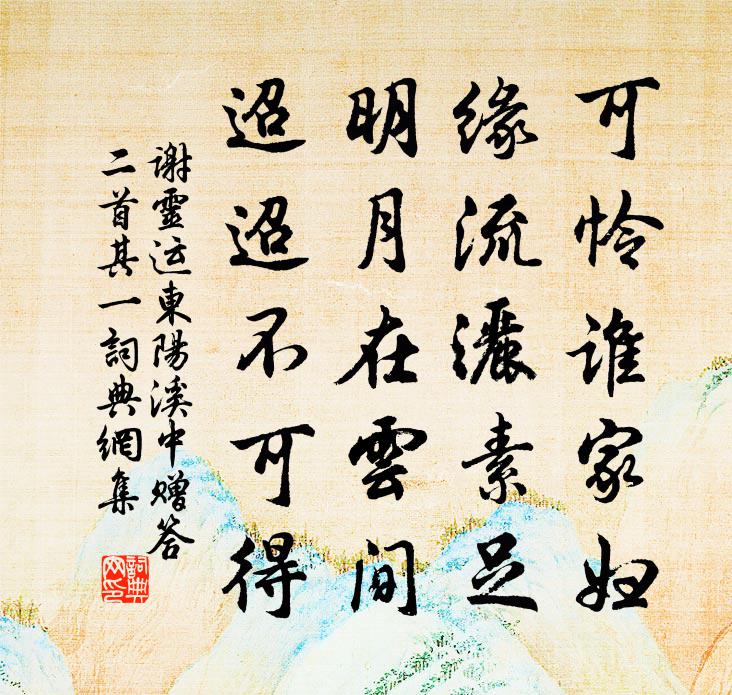 可怜谁家妇
缘流灑素足
明月在雲間
迢迢不可得
谢靈运東陽溪中赠答
二首其一詞典網集
詞典
网印